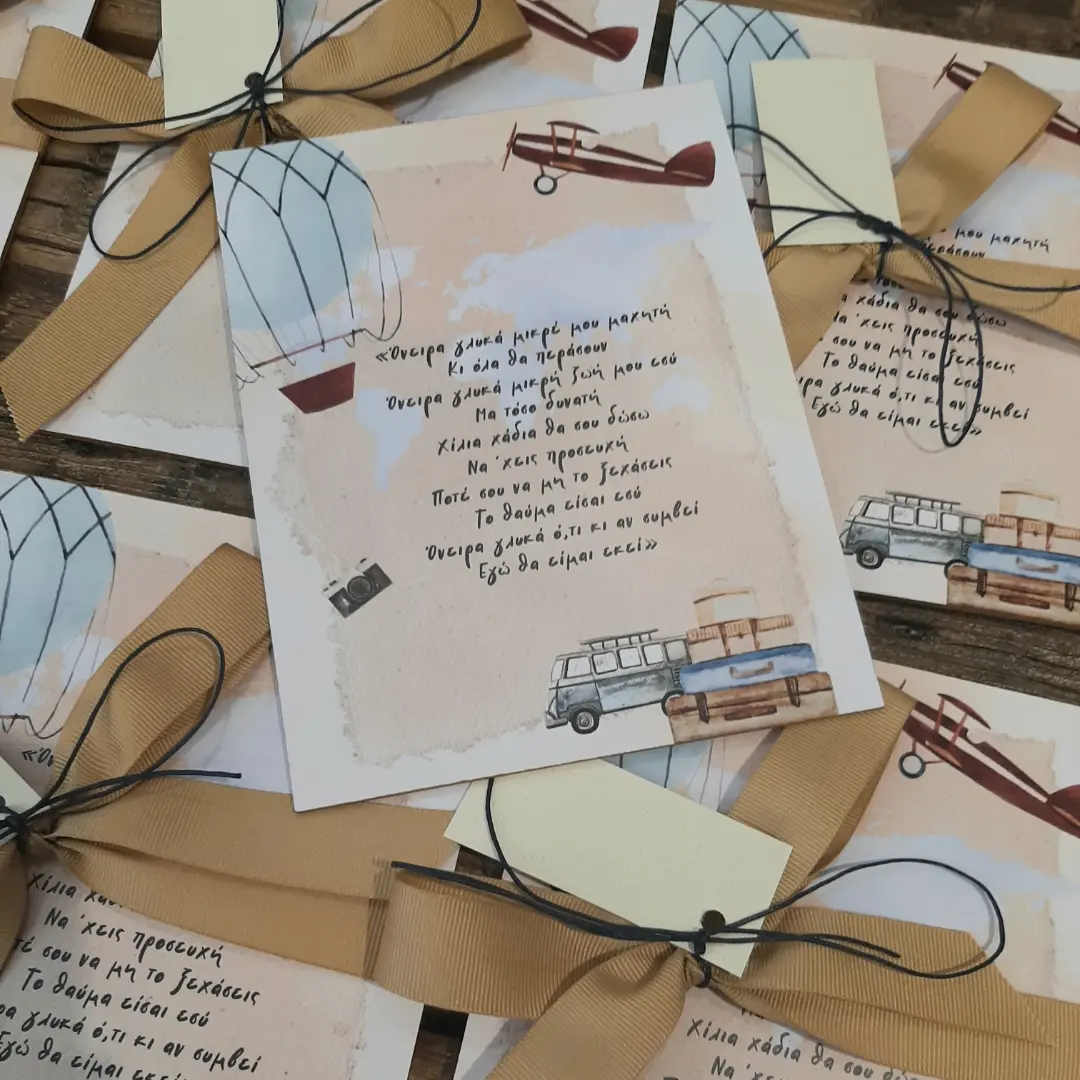 «Όνειρα γλυκά μικρέ μου μαχητή
Κι όλα θα περάσουν
Όνειρα γλυκά μικρή ζωή μου εσύ
Μα τόσο δυνατή
Χίλια χάδια θα σου δώσω
Να 'χεις προσευχή
Ποτέ σου να μη το ξεχάσεις
Το θαύμα είσαι εσύ
Όνειρα γλυκά ό,τι κι αν συμβεί
Εγώ θα είμαι εκεί»
μου μαχητή
περάσουν
χάδια θα σου δώσω
Να 'χεις προσευχή
σου να μη το ξεχάσεις
Το θαύμα είσαι εσύ
γλυκά ό,τι κι αν συμβεί
Εγώ θα είμαι εκεί»
Χίλια
Να 'χεις προσευχή
σου να μη το ξεχάσεις
Το θαύμα είσαι εσύ
γλυκά ό,τι κι αν συμβεί
Εγώ θα είμαι εκεί»
Χίλια χάδια θα σου
Να 'χεις